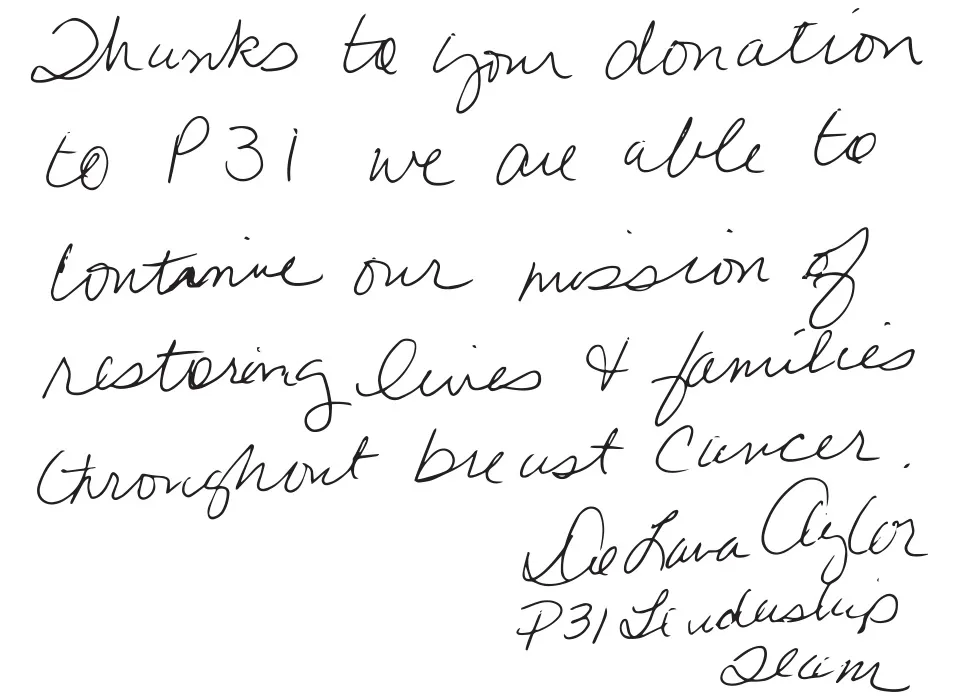 Thanks to your donation
to P31 we are able to
continue our mission of
restoring lives & families
throughout breast cancer.
DeLana Aylor
P31 Leadership
Team